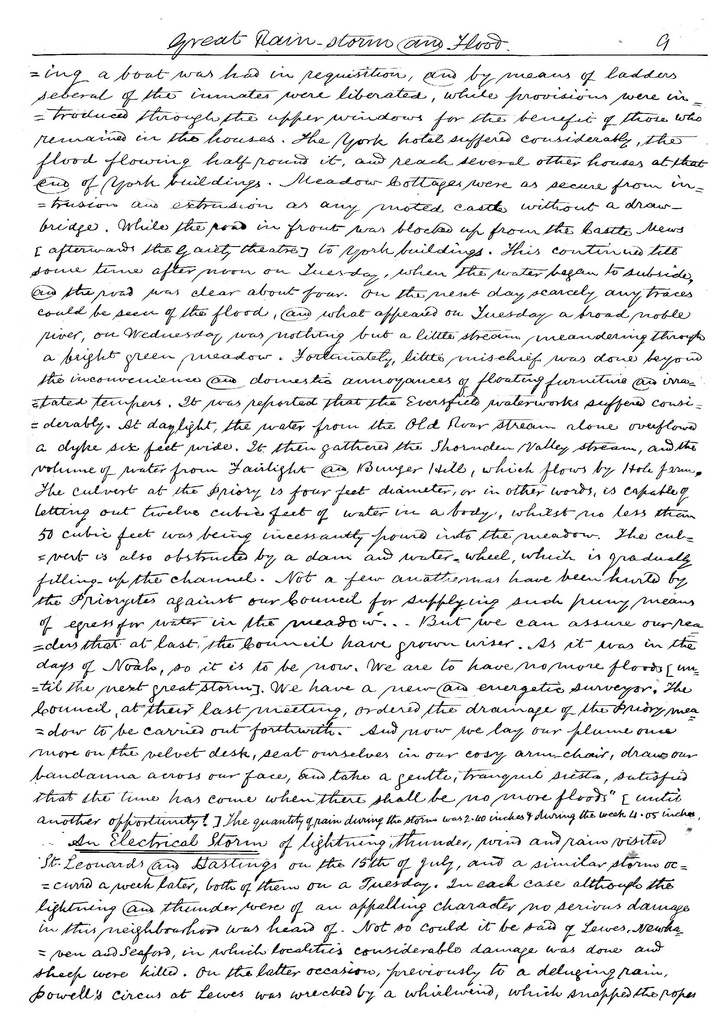 Great Rain-storm and Flood. 9
=ing a boat was had in requisition, and by means of ladders
several of the inmates were liberated, while provisions were in=
=troduced through the upper windows for the benefit of those who
remained in the houses. The York hotel suffered considerably, the
flood flowing half round it, and reach several other houses at that
end of York buildings. Meadow Cottages were as secure from in=
=trusion and extrusion as any moted castle without a draw-
bridge. While the road in front was blocked up from the Castle Mews
[afterwards the Gaiety theatre] to York buildings. This continued till
some time after noon on Tuesday, when the water began to subside,
and the road was clear about four. On the next day scarcely any traces
could be seen of the flood, and what appeared on Tuesday a broad noble
river, on Wednesday was nothing but a little stream meandering through
a bright green meadow. Fortunately, little mischief was done beyond
the inconvenience and domestic annoyances of floating furniture and irra=
=tated tempers. It was reported that the Eversfield waterworks suffered consi=
=derably. At daylight, the water from the Old Roar stream alone overflowed
a dyke six feet wide. It then gathered the Shornden Valley stream, and the
volume of water from Fairlight and Bunger Hill, which flows by Hole farm.
The culvert at the Priory is four feet diameter, or in other words, is capable of
letting out twelve cubic feet of water in a body, whilst no less than
50 cubic feet was being incessantly pourd into the meadow. The cul=
=vert is also obstructed by a dam and water-wheel, which is gradually
filling up the channel. Not a few anathemas have been hurld by
the Prioryites against our Council for supplying such puny means
of egress for water in the meadow... But we can assure our rea=
=ders that at last, the Council have grown wiser. As it was in the
days of Noah, so it is to be now. We are to have no more floods [un=
=til the next great storm]. We have a new and energetic surveyor. The
Council, at their last meeting, ordered the drainage of the Priory mea=
=dow to be carried out forthwith. And now we lay our plume once
more on the velvet desk, seat ourselves in our cosy arm-chair, draw our
bandanna across our face, and take a gentle, tranquil siesta, satisfied
that the time has come when there shall be no more floods" [until
another opportunity!] The quantity of rain during the storm was 2.40 inches & during the week 4.05 inches.
An Electrical Storm of lightning, thunder, wind and rain visited
St. Leonards and Hastings on the 15th of July, and a similar storm oc=
=curd a week later, both of them on a Tuesday. In each case although the
lightning and thunder were of an appalling character no serious damage
in this neighbourhood was heard of. Not so could it be said of Lewes, Newha=
=ven and Seaford, in which localities considerable damage was done and
sheep were killed. On the latter occasion, previously to a deluging rain,
Powell's circus at Lewes was wrecked by a whirlwind, which snapped the ropes